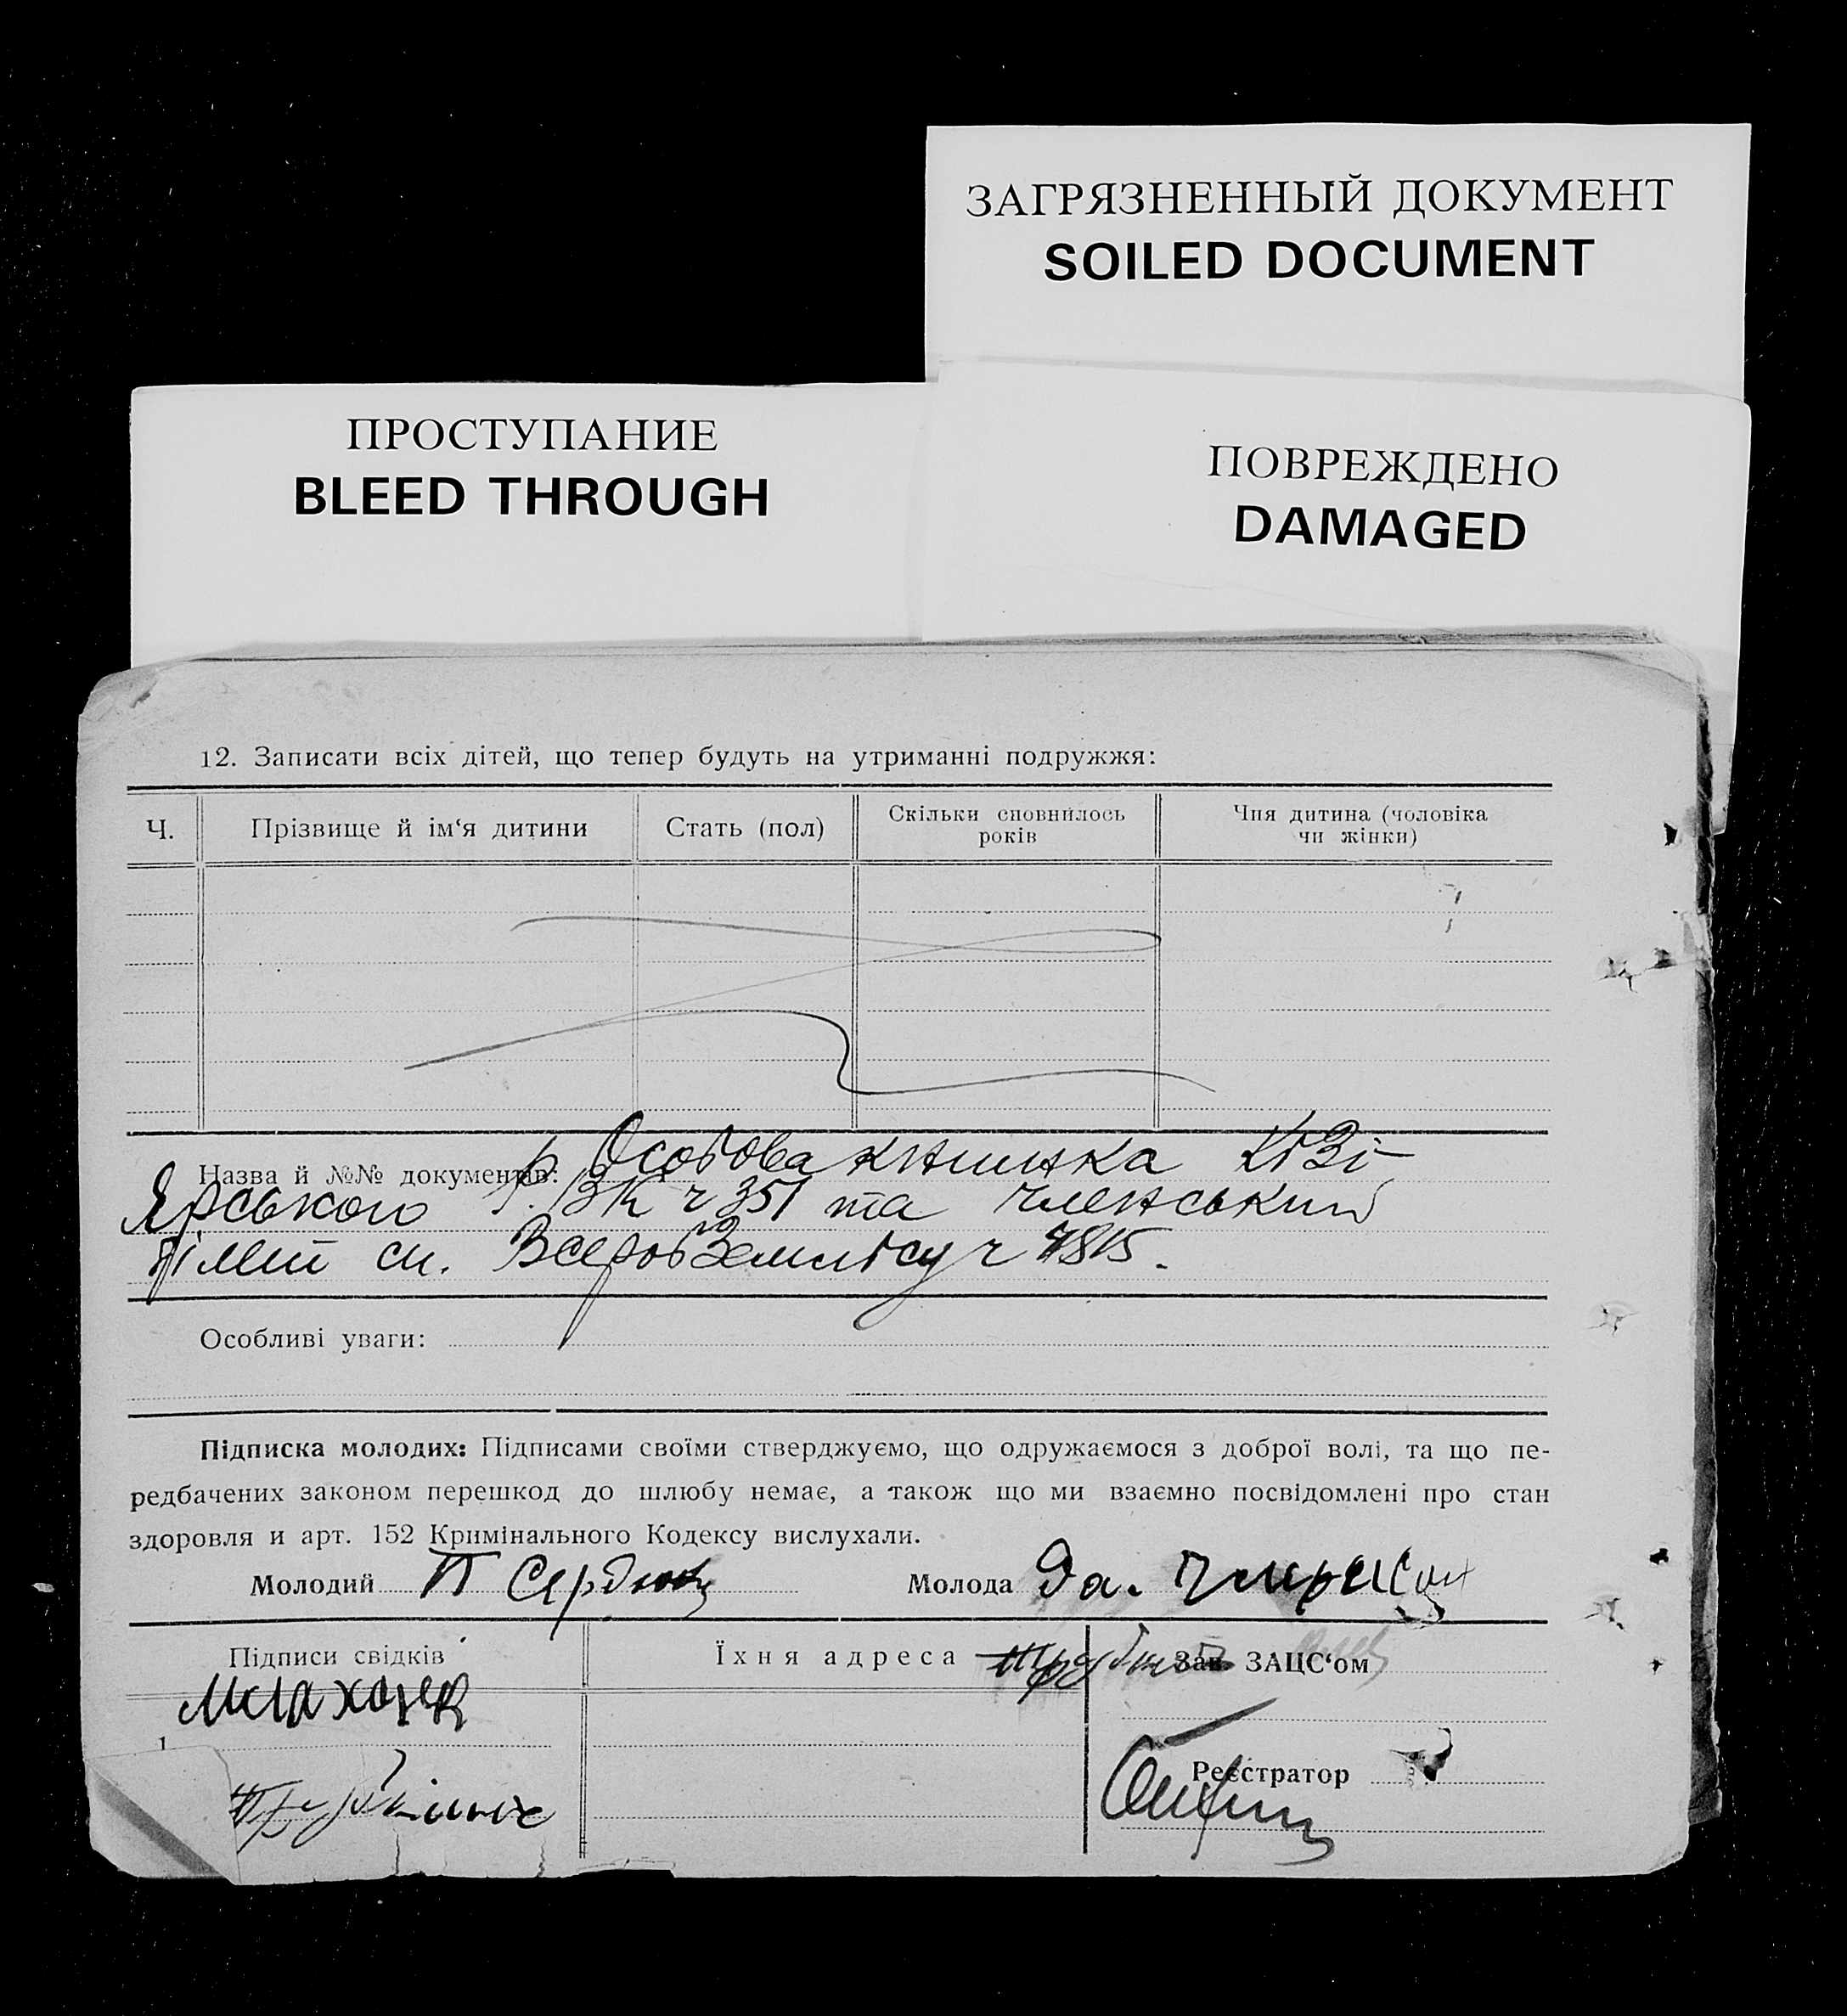 ЗАГРЯЗНЕННЫЙ ДОКУМЕНТ
SOILED DOCUMENT
ПРОСТУПАНИЕ
BLEED THROUGH
ПОВРЕЖДЕНО
DAMAGED
12. Записати всіх дітей, що тепер будуть на утриманні подружжя:
Ч.
Прізвище й ім‘я дитини
Стать (пол)
Скільки сповнилось
років
Чия дитина (чоловіка
чи жінки)
Назва й №№ документів: Особова книжка
Ярського ч 351 та членський
сп. ч
Особливі уваги:
Підписка молодих: Підписами своїми стверджуємо, що одружаємося з доброї волі, та що пе-
редбачених законом перешкод до шлюбу немає, а також що ми взаємно посвідомлені про стан
здоровля и арт. 152 Кримінального Кодексу вислухали.
Молодий П Сердюк
Молода
Підписи свідків
Їхня адреса
Зав. ЗАЦС‘ом
1
Реєстратор